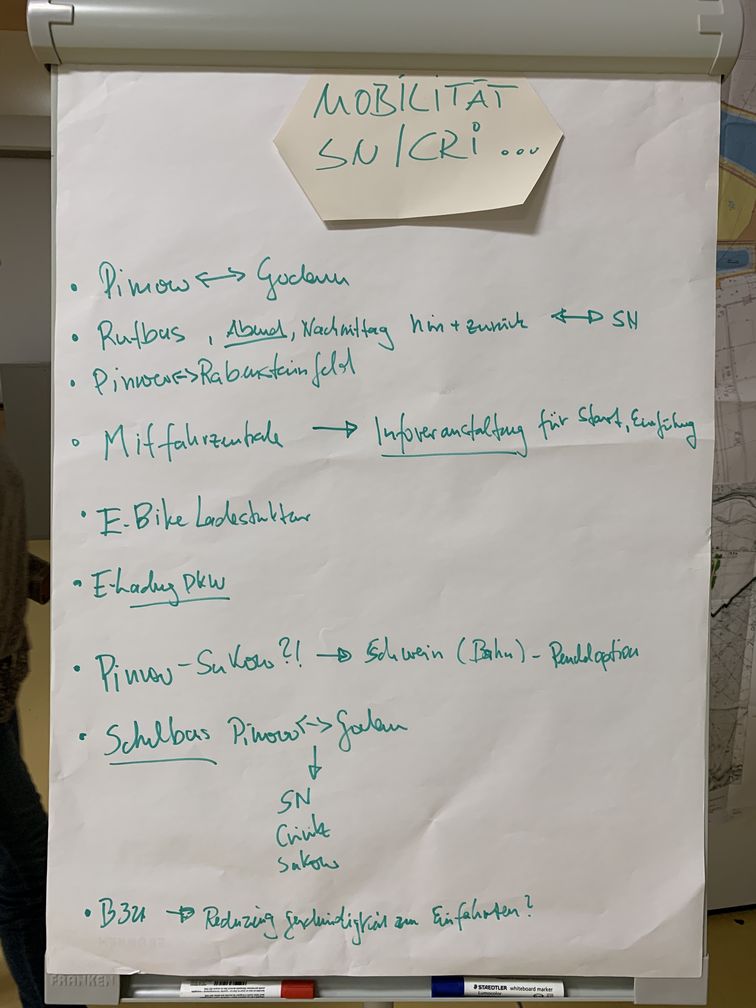 MOBILITÄT
SN/CRI ...
• Pinnow <-> Godern
• Rufbus, Abend, Nachmittag hin + zurück <-> SN
• Pinnow <-> Rabensteinfeld
• Mitfahrzentrale -> Infoveranstaltung für Start, Einführung
• E-Bike Ladestruktur
• E-Ladung PKW
• Pinnow - Sukow?! -> Schwerin (Bahn) - Pendeloption
• Schulbus Pinnow <-> Godern
SN
Crivitz
Sukow
• B321 -> Reduzierung Geschwindigkeit zum Einfahrten?
FRANKEN
STAEDTLER whiteboard marker
Lumocolor